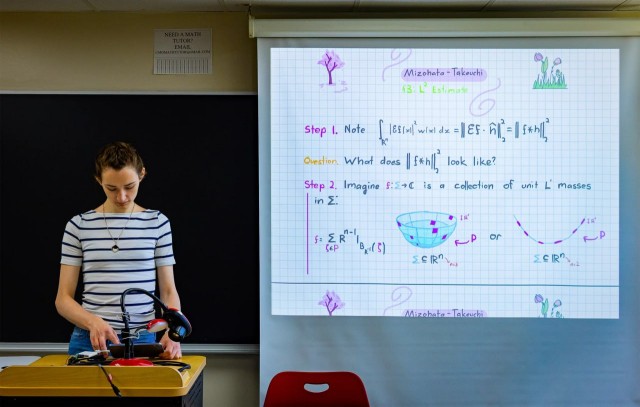 NEED A MATH
TUTOR?
EMAIL
Mizohata-Takeuchi
L² Estimate
Step 1. Note ∫ |Ef(x)|² w(x) dx = ‖Ef · ĥ‖₂² = ‖f*h‖₂²
Rⁿ
Question. What does ‖f*h‖₂² look like?
Step 2. Imagine f: Σ→ℂ is a collection of unit L¹ masses
in Σ:
f = Σ Rⁿ⁻¹ 1
P or P
Σ ⊆ Rⁿ Σ ⊆ Rⁿ
Mizohata-Takeuchi